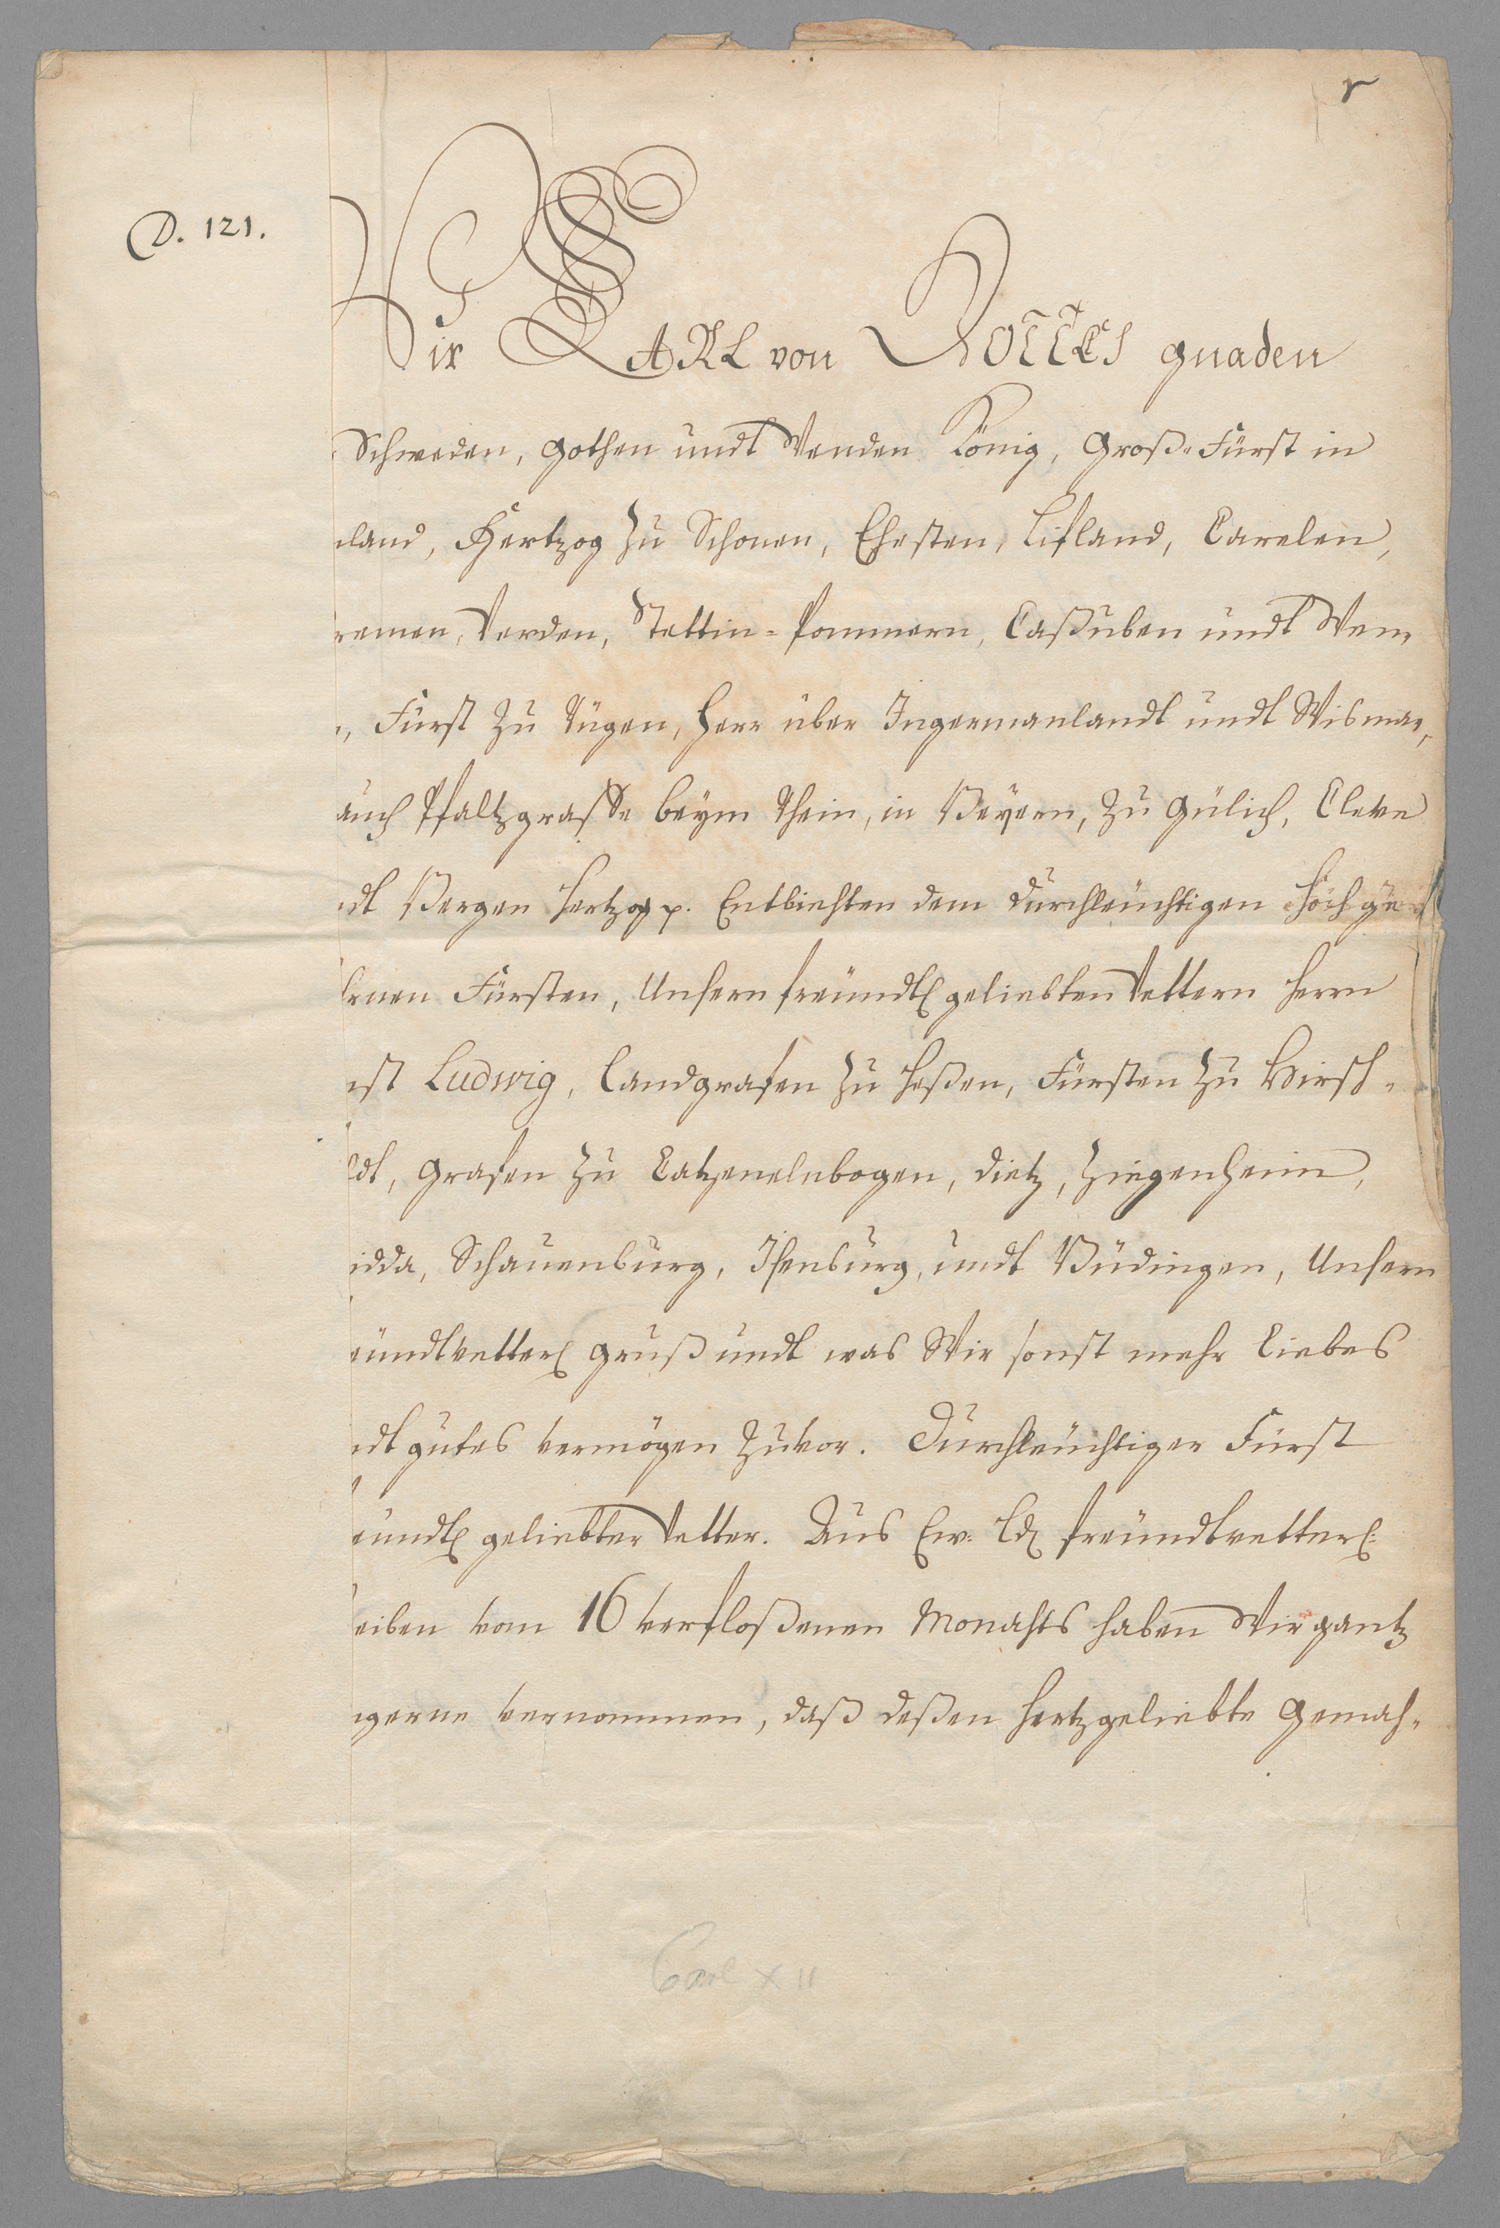 D. 121.
Wir CARL von GOTTES gnaden
Schweden, Gothen undt Wenden König, Groß-Fürst in
nland, Hertzog zu Schonen, Ehesten, Lifland, Carelen,
remen, Verden, Stettin-Pommern, Caßuben undt Wen-
n, Fürst zu Rügen, Herr über Ingermanlandt undt Wismar,
auch Pfaltzgraffe beym Rhein, in Beyern, zu Gülich, Cleve
dt Bergen Hertzog p. Entbiehten dem Durchleuchtigen Hochge
rnen Fürsten, Unsern freundtl geliebten Vettern Herrn
nst Ludwig, Landgrafen zu Heßen, Fürsten zu Hirsch-
ldt, Grafen zu Catzenelnbogen, Dietz, Ziegenheim,
idda, Schauenburg, Isenburg, undt Büdingen, Unsern
eundtvetterl gruß undt was Wir sonst mehr Liebes
dt gutes vermögen zuvor. Durchleuchtiger Fürst
eundtl geliebter Vetter. Aus Ew: Ld freundtvetterl:
eiben vom 16 verfloßenen Monahts haben Wir gantz
gerne vernommen, daß deßen Hertzgeliebte Gemah-
Carl XII